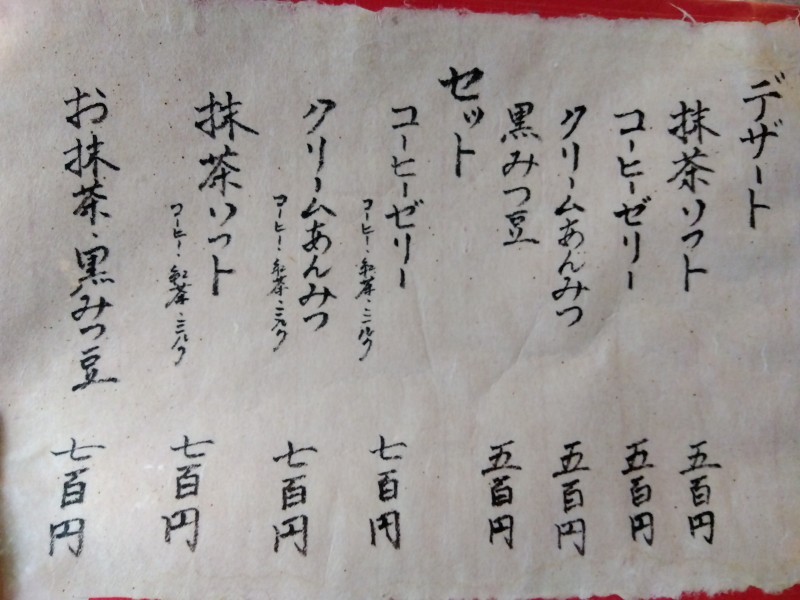 デザート
抹茶ソフト 五百円
コーヒーゼリー 五百円
クリームあんみつ 五百円
黒みつ豆 五百円
セット
コーヒーゼリー 七百円
コーヒー・紅茶・ミルク
クリームあんみつ 七百円
コーヒー・紅茶・ミルク
抹茶ソフト 七百円
コーヒー・紅茶・ミルク
お抹茶・黒みつ豆 七百円